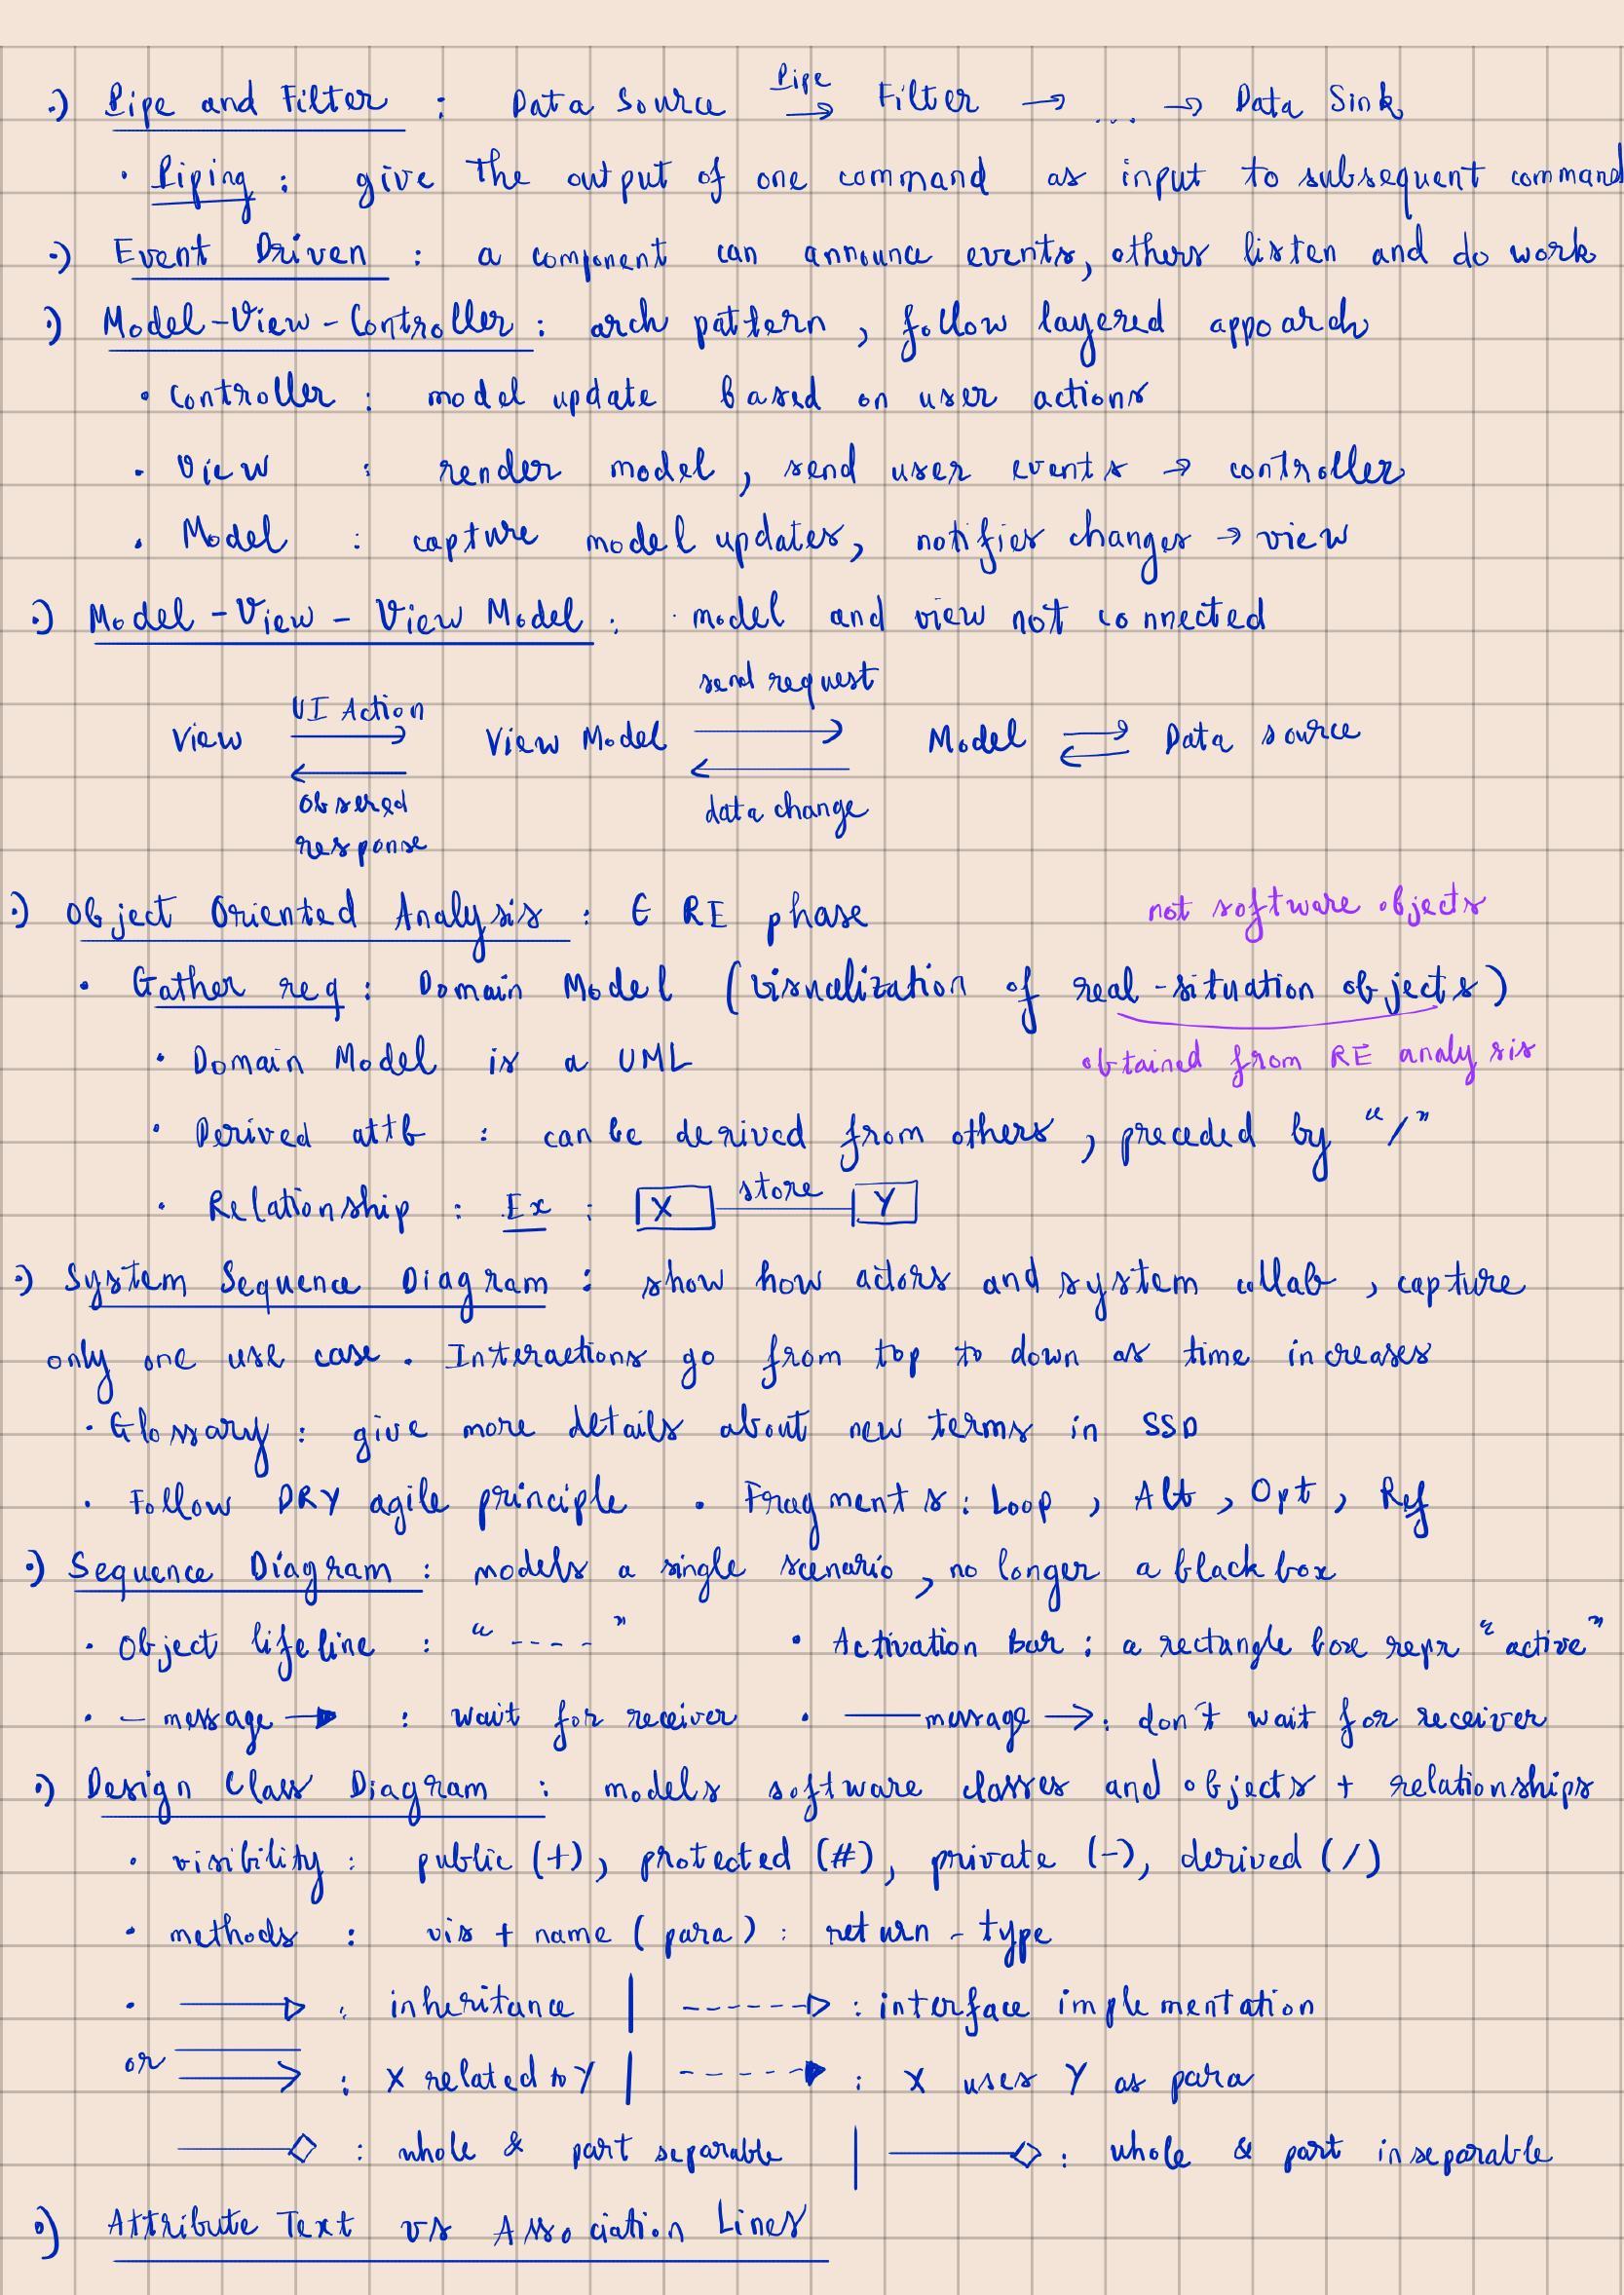 •) Pipe and Filter : Data Source Pipe → Filter → ... → Data Sink
• Piping : give the output of one command as input to subsequent command
•) Event Driven : a component can announce events, others listen and do work
•) Model-View-Controller : arch pattern, follow layered appoarch
• Controller : model update based on user actions
• View : render model, send user events → controller
• Model : capture model updates, notifies changes → view
•) Model-View-View Model : model and view not connected
send request
UI Action
View → View Model → Model ⇄ Data source
←
Obsered data change
response
•) Object Oriented Analysis : ∈ RE phase not software objects
• Gather req : Domain Model (visualization of real-situation objects)
• Domain Model is a UML obtained from RE analysis
• Derived attb : can be derived from others, preceded by "/"
• Relationship : Ex : X store Y
•) System Sequence Diagram : show how actors and system collab, capture
only one use case. Interactions go from top to down as time increases
• Glossary : give more details about new terms in SSD
• Follow DRY agile principle • Fragments : Loop, Alt, Opt, Ref
•) Sequence Diagram : models a single scenario, no longer a black box
• Object lifeline : "----" • Activation Bar : a rectangle box repr "active"
• — message → : wait for receiver • — message → : don't wait for receiver
•) Design Class Diagram : models software classes and objects + relationships
• visibility : public (+), protected (#), private (-), derived (/)
• methods : vis + name (para) : return-type
• —▷ : inheritance | ----▷ : interface implementation
or —→ : X related to Y | ---→ : X uses Y as para
—◇ : whole & part separable | —◇ : whole & part inseparable
•) Attribute Text vs Association Lines